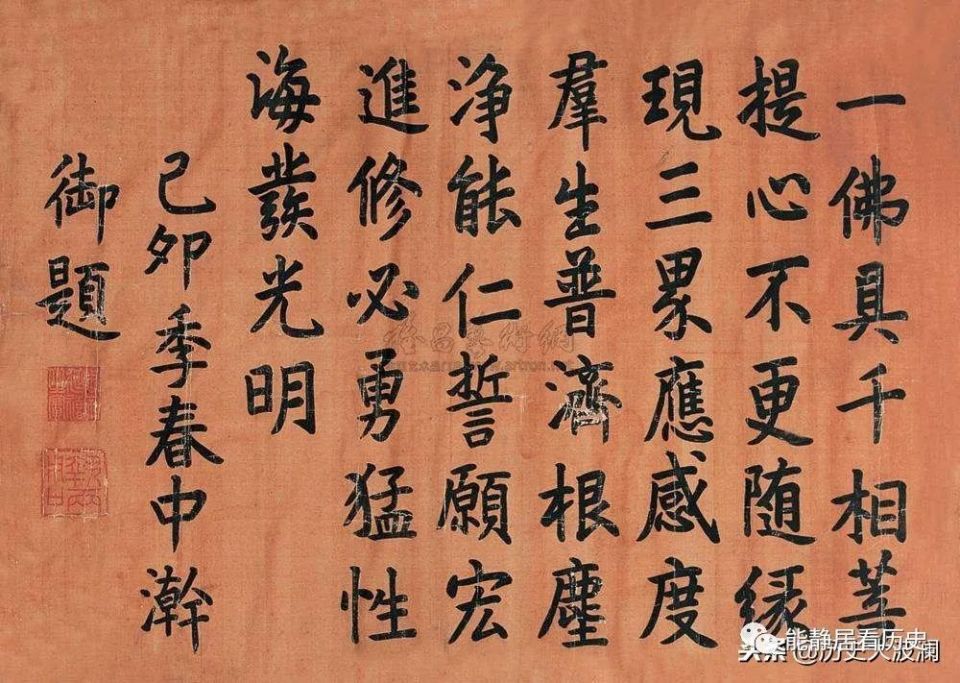 一佛具千相菩
提心不更随緣
現三界應感度
羣生普濟根塵
净能仁誓願宏
進修必勇猛性
海發光明
己卯季春中澣
御題
雅昌藝術網
能静居看历史
头条@历史大波澜